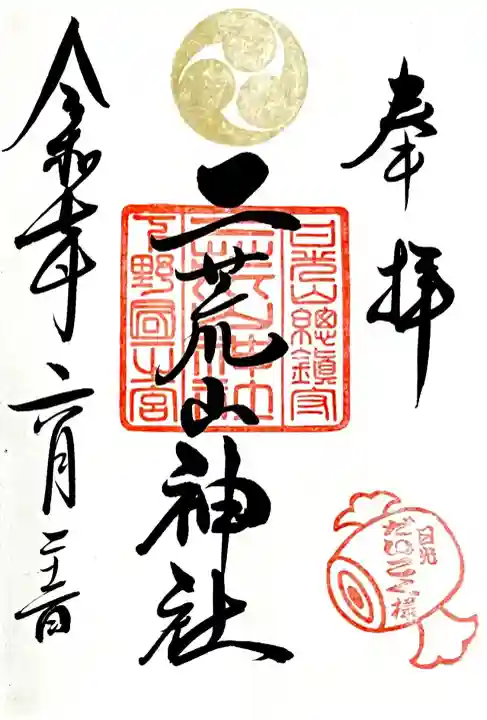 奉拝
日光山總鎮守
二荒山神社
二荒山神社
下野國一之宮
令和七年六月
日光
だいこく様